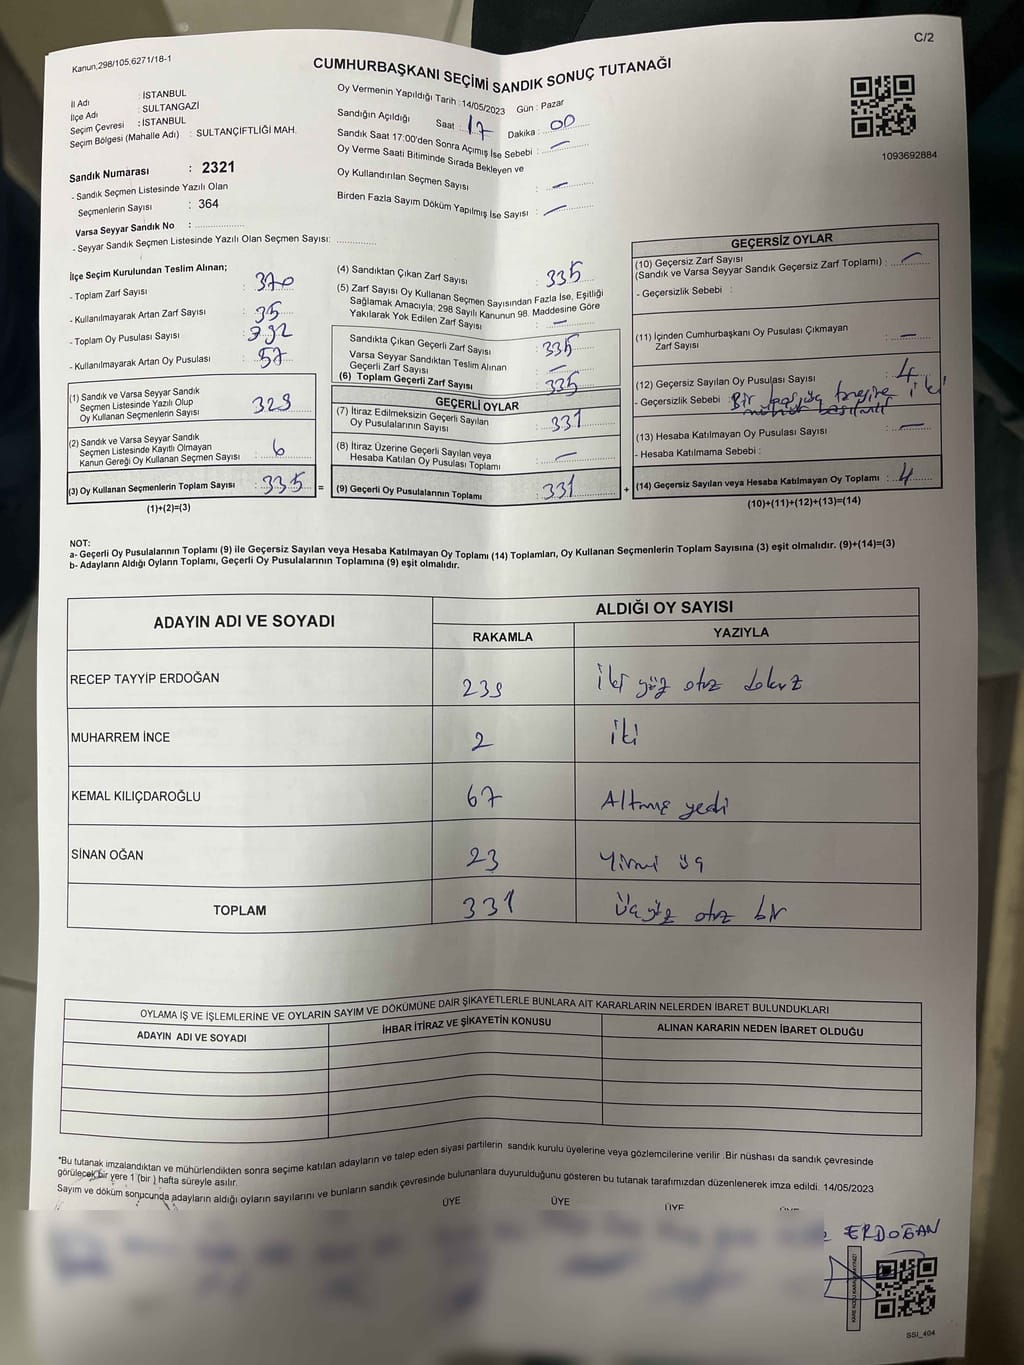 C/2
Kanun,298/105,6271/18-1
CUMHURBAŞKANI SEÇİMİ SANDIK SONUÇ TUTANAĞI
İl Adı : İSTANBUL
İlçe Adı : SULTANGAZİ
Seçim Çevresi : İSTANBUL
Seçim Bölgesi (Mahalle Adı) : SULTANÇİFTLİĞİ MAH.
Sandık Numarası : 2321
- Sandık Seçmen Listesinde Yazılı Olan
Seçmenlerin Sayısı : 364
Varsa Seyyar Sandık No :
- Seyyar Sandık Seçmen Listesinde Yazılı Olan Seçmen Sayısı:
Oy Vermenin Yapıldığı Tarih : 14/05/2023 Gün : Pazar
Sandığın Açıldığı Saat : 17 Dakika : 00
Sandık Saat 17:00'den Sonra Açımış İse Sebebi : —
Oy Verme Saati Bitiminde Sırada Bekleyen ve
Oy Kullandırılan Seçmen Sayısı : —
Birden Fazla Sayım Döküm Yapılmış İse Sayısı : —
1093692884
İlçe Seçim Kurulundan Teslim Alınan;
- Toplam Zarf Sayısı : 370
- Kullanılmayarak Artan Zarf Sayısı : 35
- Toplam Oy Pusulası Sayısı :
- Kullanılmayarak Artan Oy Pusulası : 57
(1) Sandık ve Varsa Seyyar Sandık
Seçmen Listesinde Yazılı Olup
Oy Kullanan Seçmenlerin Sayısı : 329
(2) Sandık ve Varsa Seyyar Sandık
Seçmen Listesinde Kayıtlı Olmayan
Kanun Gereği Oy Kullanan Seçmen Sayısı : 6
(3) Oy Kullanan Seçmenlerin Toplam Sayısı : 335 =
(1)+(2)=(3)
(4) Sandıktan Çıkan Zarf Sayısı : 335
(5) Zarf Sayısı Oy Kullanan Seçmen Sayısından Fazla İse, Eşitliği
Sağlamak Amacıyla, 298 Sayılı Kanunun 98. Maddesine Göre
Yakılarak Yok Edilen Zarf Sayısı : —
Sandıkta Çıkan Geçerli Zarf Sayısı : 335
Varsa Seyyar Sandıktan Teslim Alınan
Geçerli Zarf Sayısı : —
(6) Toplam Geçerli Zarf Sayısı : 335
GEÇERLİ OYLAR
(7) İtiraz Edilmeksizin Geçerli Sayılan
Oy Pusulalarının Sayısı : 331
(8) İtiraz Üzerine Geçerli Sayılan veya
Hesaba Katılan Oy Pusulası Toplamı : —
(9) Geçerli Oy Pusulalarının Toplamı : 331 +
GEÇERSİZ OYLAR
(10) Geçersiz Zarf Sayısı
(Sandık ve Varsa Seyyar Sandık Geçersiz Zarf Toplamı) : —
- Geçersizlik Sebebi :
(11) İçinden Cumhurbaşkanı Oy Pusulası Çıkmayan
Zarf Sayısı : —
(12) Geçersiz Sayılan Oy Pusulası Sayısı : 4
- Geçersizlik Sebebi : Bir iki
mühür
(13) Hesaba Katılmayan Oy Pusulası Sayısı : —
- Hesaba Katılmama Sebebi :
(14) Geçersiz Sayılan veya Hesaba Katılmayan Oy Toplamı : 4
(10)+(11)+(12)+(13)=(14)
NOT:
a- Geçerli Oy Pusulalarının Toplamı (9) ile Geçersiz Sayılan veya Hesaba Katılmayan Oy Toplamı (14) Toplamları, Oy Kullanan Seçmenlerin Toplam Sayısına (3) eşit olmalıdır. (9)+(14)=(3)
b- Adayların Aldığı Oyların Toplamı, Geçerli Oy Pusulalarının Toplamına (9) eşit olmalıdır.
ADAYIN ADI VE SOYADI
ALDIĞI OY SAYISI
RAKAMLA YAZIYLA
RECEP TAYYİP ERDOĞAN 239 iki yüz otuz dokuz
MUHARREM İNCE 2 iki
KEMAL KILIÇDAROĞLU 67 Altmış yedi
SİNAN OĞAN 23 Yirmi üç
TOPLAM 331 Üç yüz otuz bir
OYLAMA İŞ VE İŞLEMLERİNE VE OYLARIN SAYIM VE DÖKÜMÜNE DAİR ŞİKAYETLERLE BUNLARA AİT KARARLARIN NELERDEN İBARET BULUNDUKLARI
ADAYIN ADI VE SOYADI İHBAR İTİRAZ VE ŞİKAYETİN KONUSU ALINAN KARARIN NEDEN İBARET OLDUĞU
*Bu tutanak imzalandıktan ve mühürlendikten sonra seçime katılan adayların ve talep eden siyasi partilerin sandık kurulu üyelerine veya gözlemcilerine verilir .Bir nüshası da sandık çevresinde
görülecek bir yere 1 (bir ) hafta süreyle asılır.
Sayım ve döküm sonucunda adayların aldığı oyların sayılarını ve bunların sandık çevresinde bulunanlara duyurulduğunu gösteren bu tutanak tarafımızdan düzenlenerek imza edildi. 14/05/2023
ÜYE ÜYE ÜYE
ERDOĞAN
SSI_404